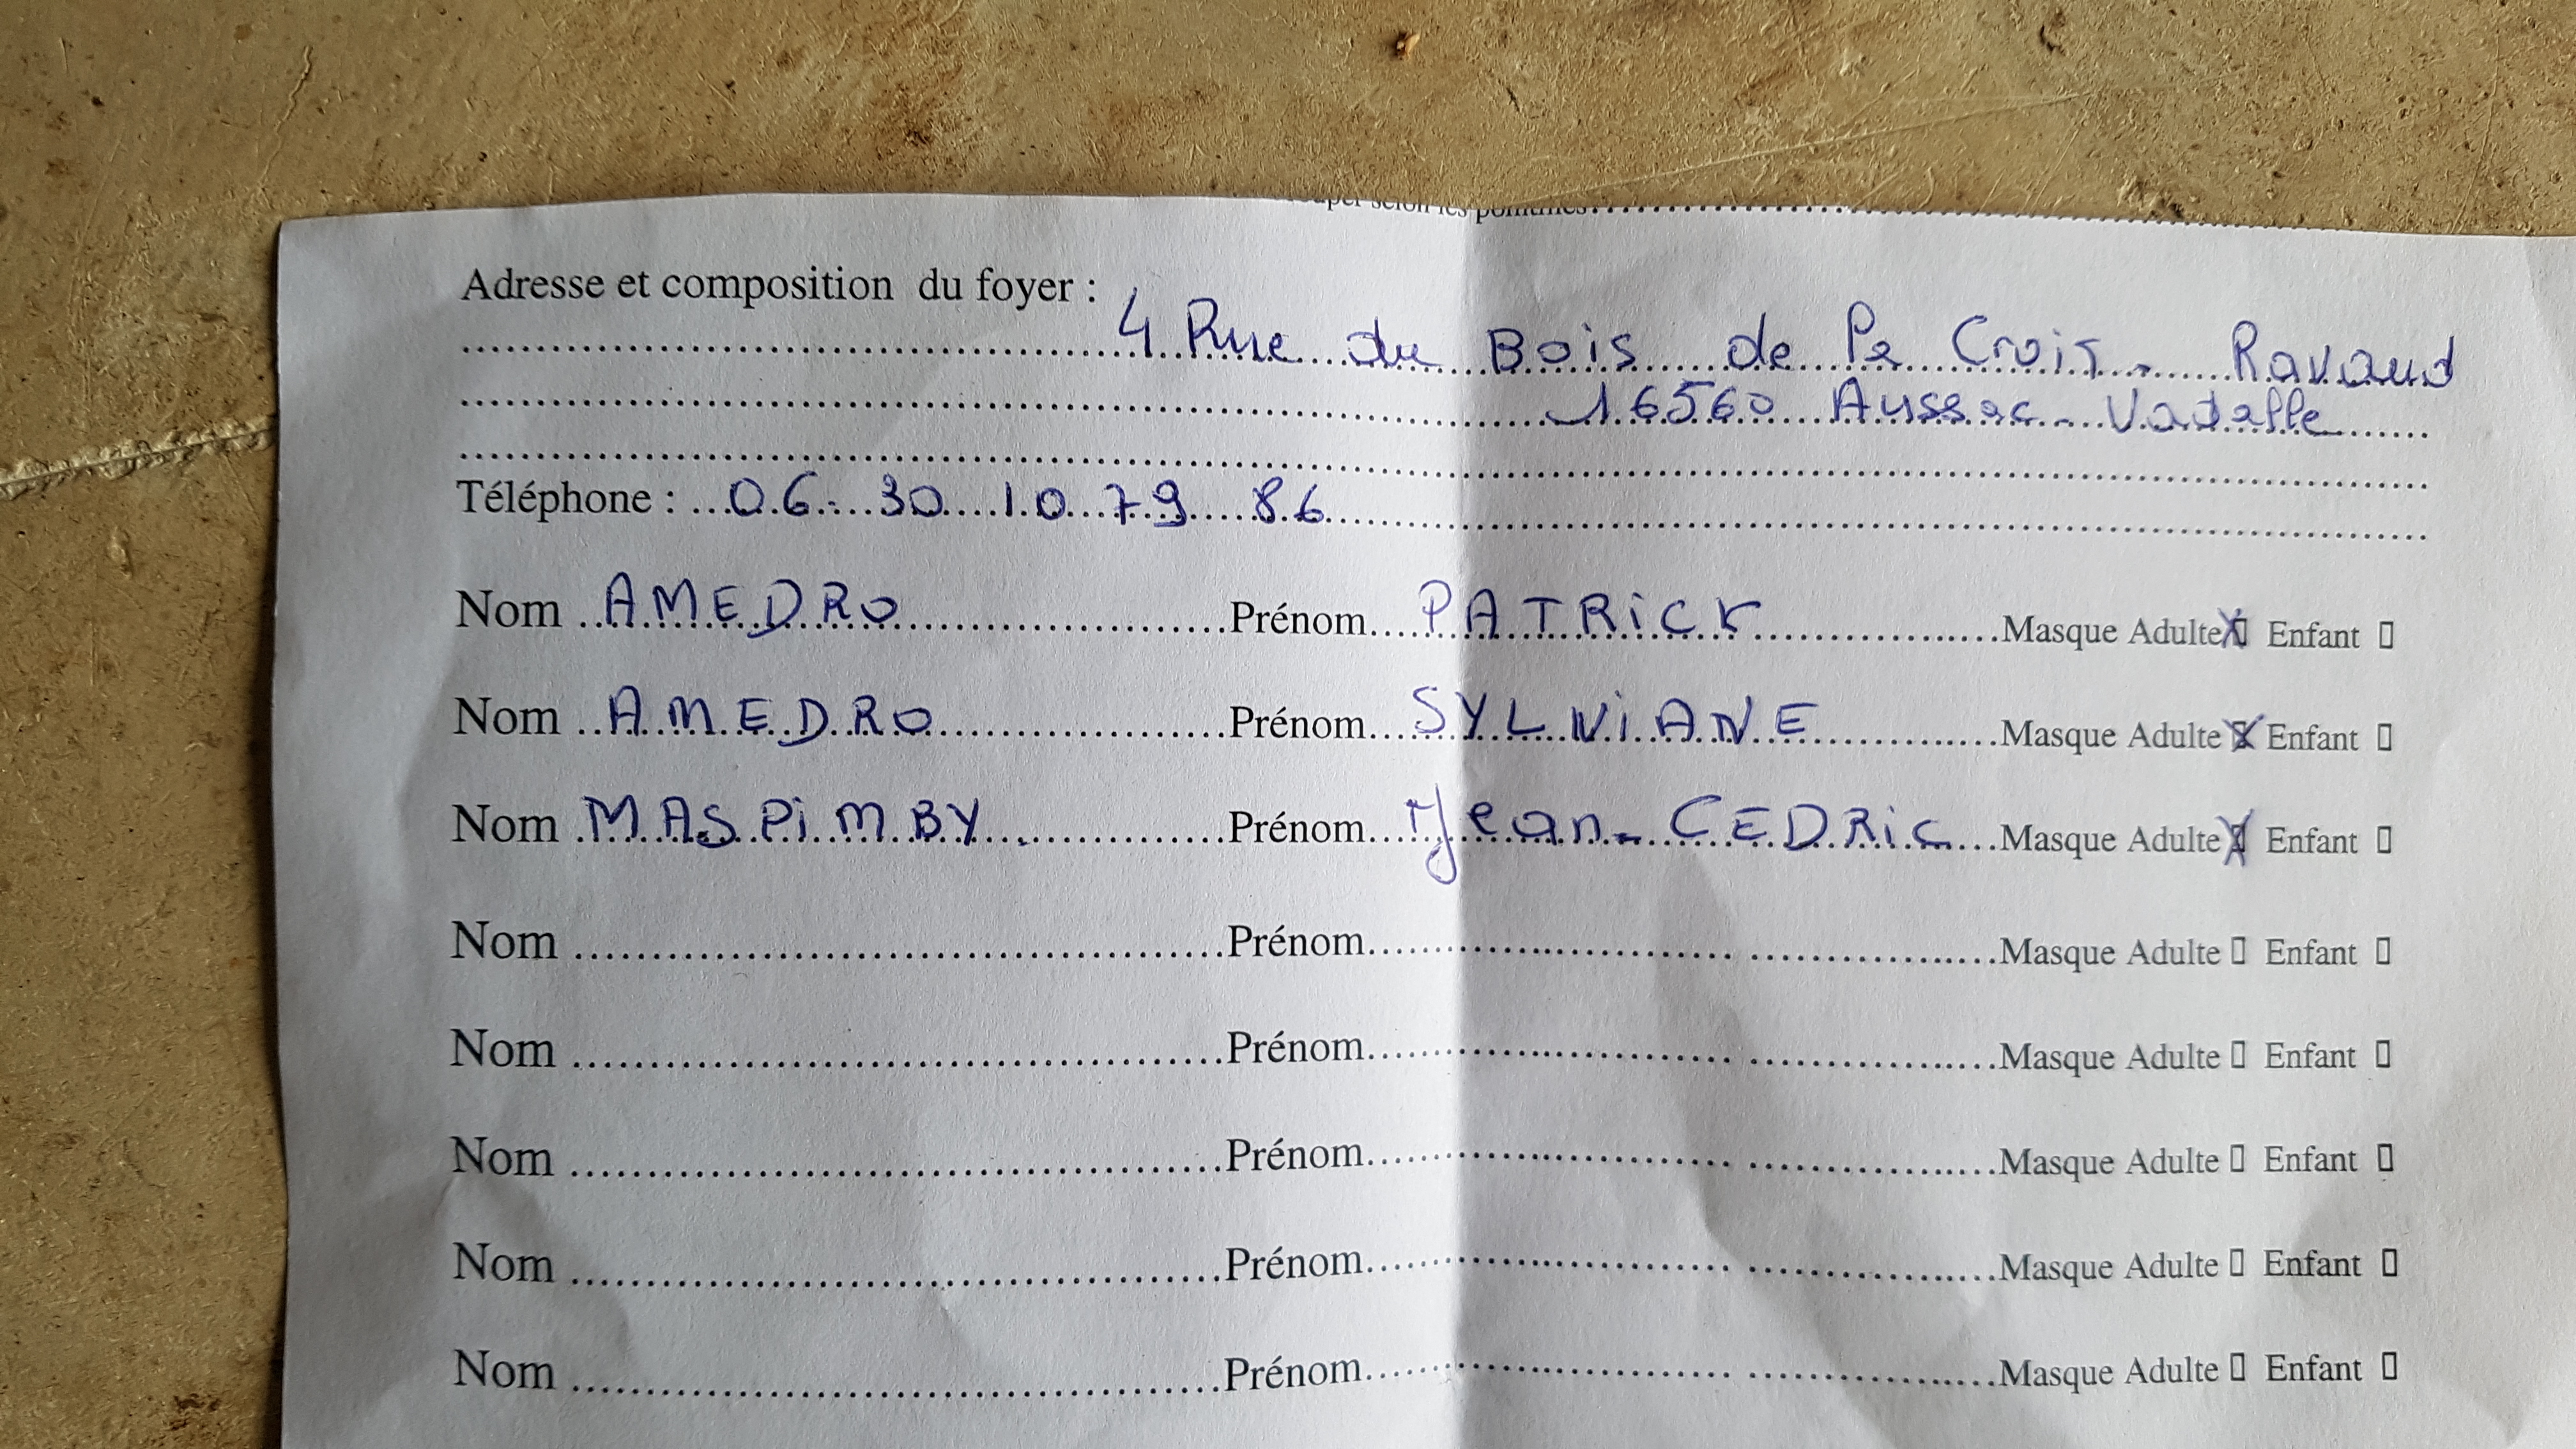 ouper selon les pointillés
Adresse et composition du foyer :
4 Rue du Bois de la Croix - Ravaud
16560 Aussac - Vadalle
Téléphone : 06 30 10 79 86
Nom AMEDRO Prénom PATRICK Masque Adulte X Enfant ▯
Nom AMEDRO Prénom SYLVIANE Masque Adulte X Enfant ▯
Nom MASPIMBY Prénom Jean-CEDRIC Masque Adulte X Enfant ▯
Nom Prénom Masque Adulte ▯ Enfant ▯
Nom Prénom Masque Adulte ▯ Enfant ▯
Nom Prénom Masque Adulte ▯ Enfant ▯
Nom Prénom Masque Adulte ▯ Enfant ▯
Nom Prénom Masque Adulte ▯ Enfant ▯